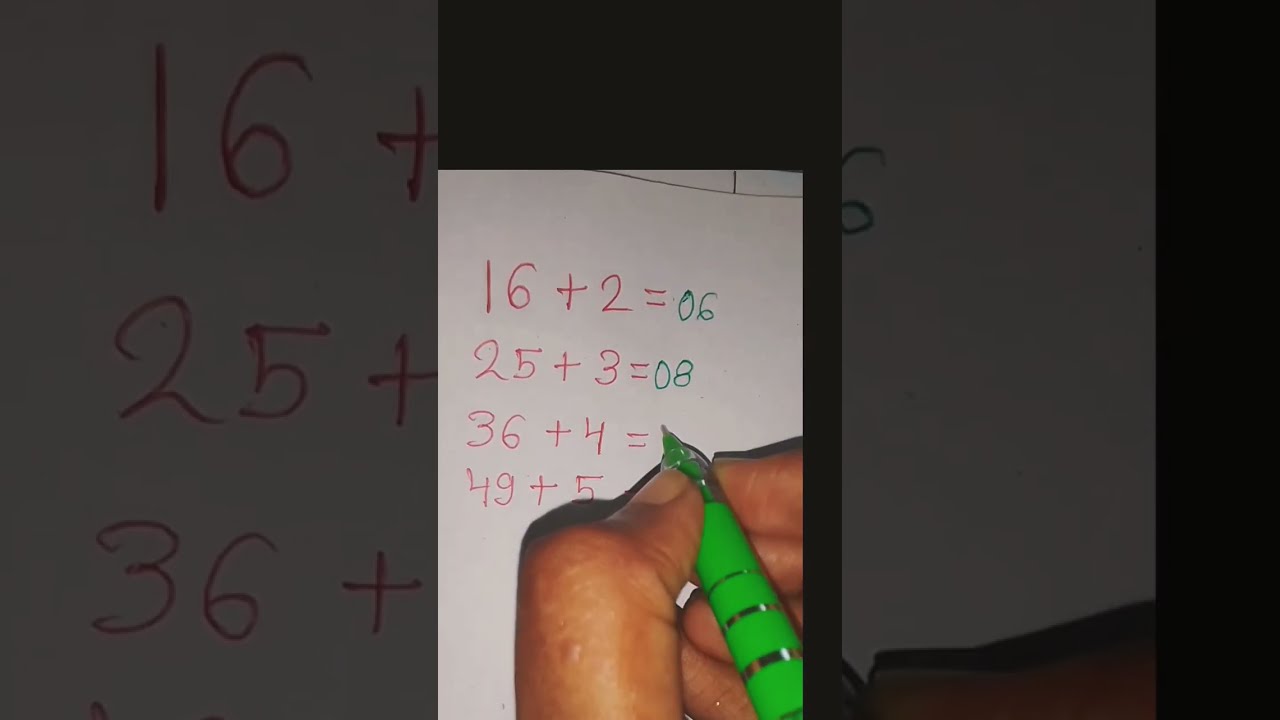 16 + 2 = 06
25 + 3 = 08
36 + 4 =
49 + 5